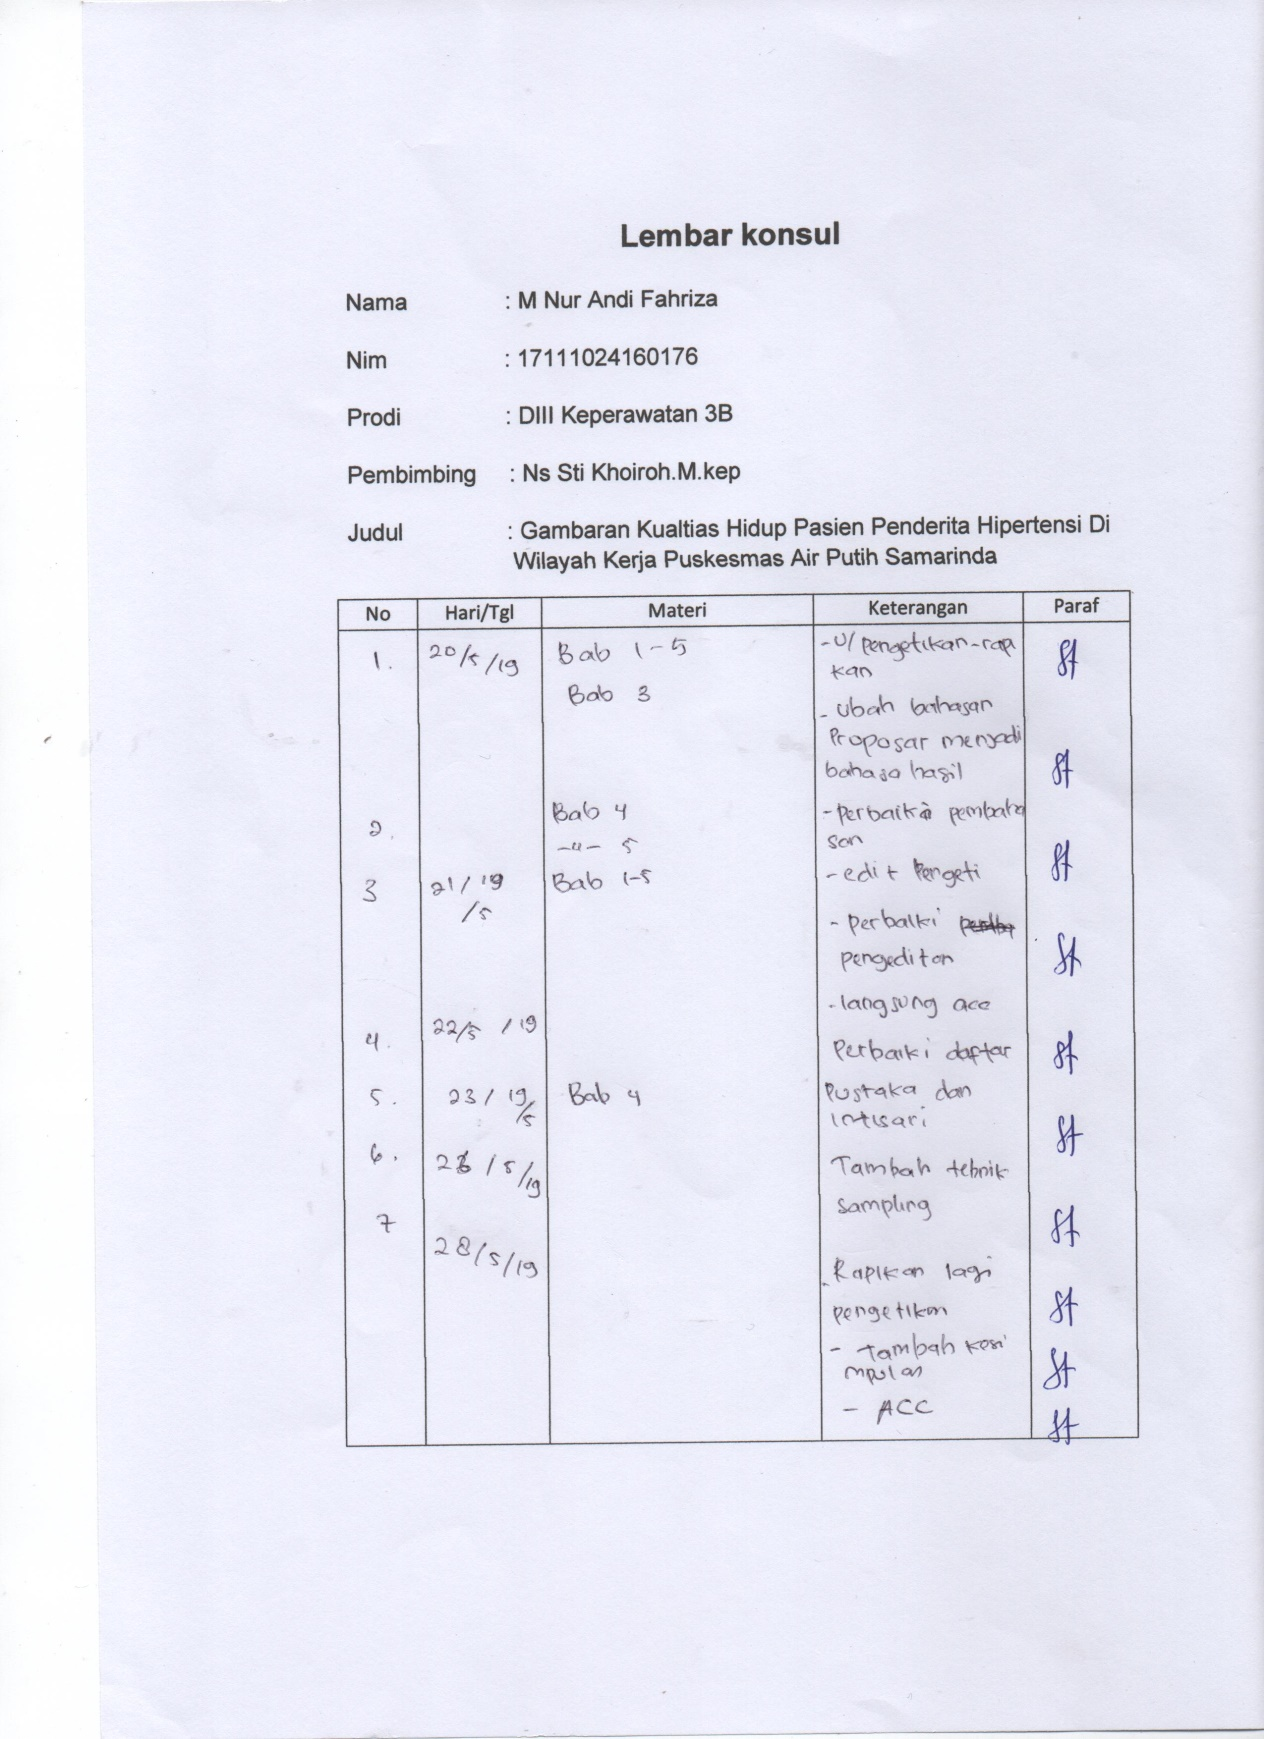 Lembar konsul
Nama : M Nur Andi Fahriza
Nim : 17111024160176
Prodi : DIII Keperawatan 3B
Pembimbing : Ns Sti Khoiroh.M.kep
Judul : Gambaran Kualtias Hidup Pasien Penderita Hipertensi Di
Wilayah Kerja Puskesmas Air Putih Samarinda
No Hari/Tgl Materi Keterangan Paraf
1. 20/5/19 Bab 1-5 -U/pengetikan-rapi
kan
Bab 3
- Ubah bahasan
Proposar menjadi
bahasa hasil
Bab 4 -perbaiki pembaha
2.
-"- 5 san
3 21/19 Bab 1-5 -edit Pengeti
/5
- perbaiki
pengeditan
-langsung acc
4. 22/5 /19
Perbaiki daftar
5. 23/19 Bab 4 Pustaka dan
/5 intisari
6. /5/19 Tambah tehnik
sampling
7
28/5/19
-Rapikan lagi
pengetikan
- Tambah kesi
mpulan
- ACC